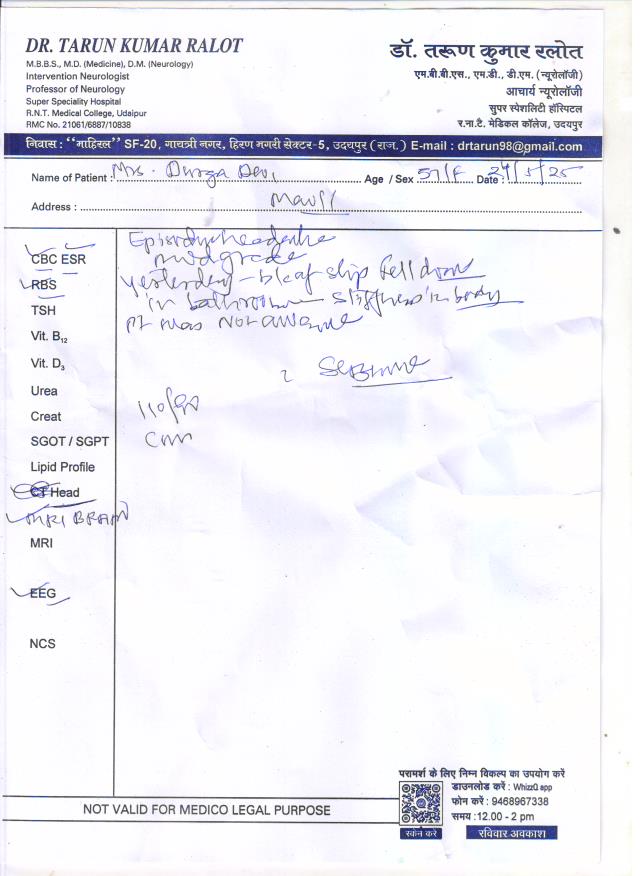 DR. TARUN KUMAR RALOT
M.B.B.S., M.D. (Medicine), D.M. (Neurology)
Intervention Neurologist
Professor of Neurology
Super Speciality Hospital
R.N.T. Medical College, Udaipur
RMC No. 21061/6887/10838
डॉ. तरूण कुमार रलोत
एम.बी.बी.एस., एम.डी., डी.एम. (न्यूरोलॉजी)
आचार्य न्यूरोलॉजी
सुपर स्पेशलिटी हॉस्पिटल
र.ना.टै. मेडिकल कॉलेज, उदयपुर
निवास : "माहिरल" SF-20, गायत्री नगर, हिरण मगरी सेक्टर-5, उदयपुर (राज.) E-mail : drtarun98@gmail.com
Name of Patient : Mrs. Durga Devi Age / Sex 57/F Date : 24/5/25
Address : Mavli
CBC ESR
RBS
TSH
Vit. B12
Vit. D3
Urea
Creat
SGOT / SGPT
Lipid Profile
CT Head
MRI BRAIN
MRI
EEG
NCS
headache
yesterday - fell down
in bathroom stiffness in body
Pt was not aware
? Seizure
110/90
परामर्श के लिए निम्न विकल्प का उपयोग करें
डाउनलोड करें : WhizzQ app
फोन करें : 9468967338
समय : 12.00 - 2 pm
स्कॅन करें रविवार अवकाश
NOT VALID FOR MEDICO LEGAL PURPOSE